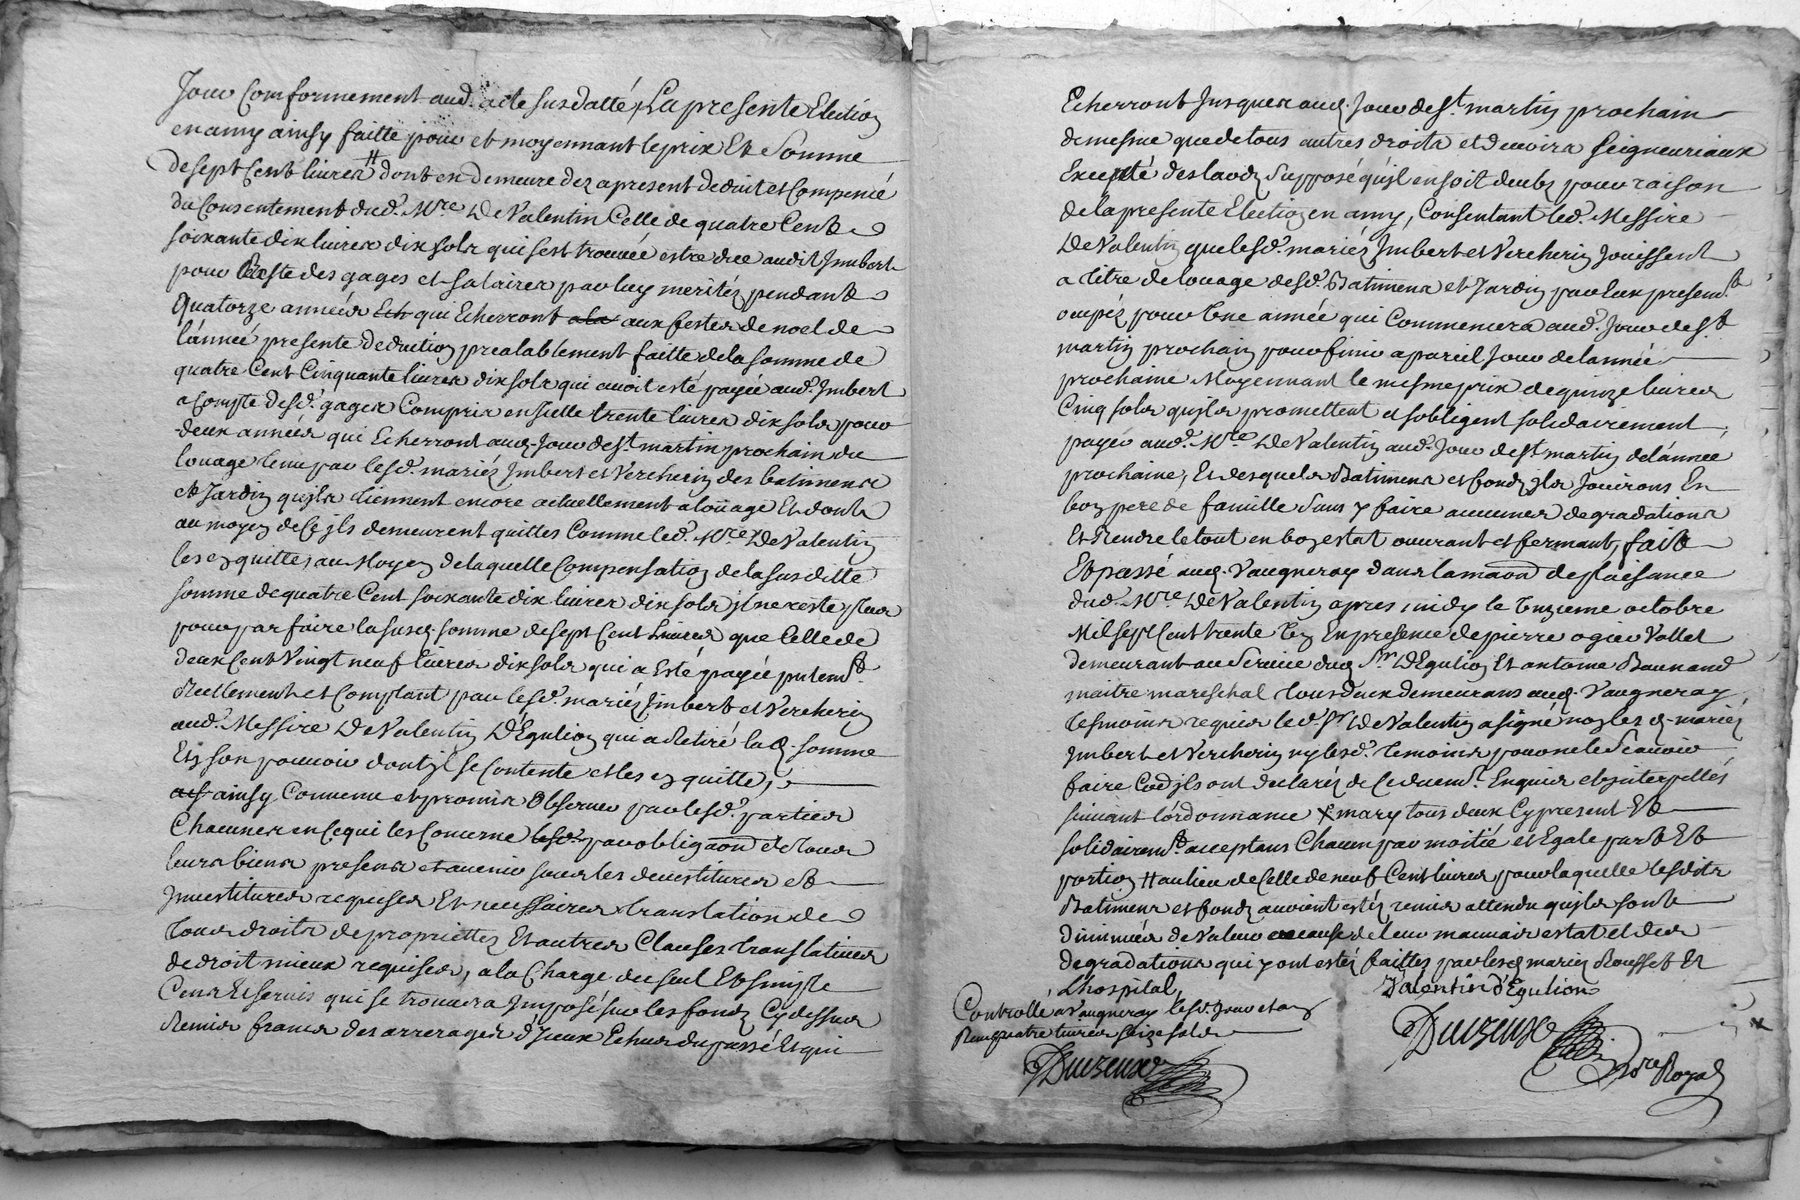 Jour Comformement aud. acte susdatté, La presente Election
en amy ainsy faitte pour et moyennant le prix Et Somme
de sept Cent livres # dont en demeure dez a present deduit et Compencé
du Consentement dud. Mre De Valentin Celle de quatre Cent
soixante dix livres dix sols qui s'est trouvée estre due audit Imbert
pour Reste des gages et salaires par luy meritéz pendant
quatorze années Ech qui Echerront a la aux festes de noel de
l'année presente deduction prealablement faitte de la somme de
quatre Cent Cinquante livres dix sols qui avoit esté payée aud. Imbert
a Compte desd. gages Compris en Icelle trente livres dix sols pour
deux années qui Echerront aud. Jour de st. martin prochain du
louage tenu par lesd. mariéz Imbert et Vercherin des batimens
et Jardin qu'ils tiennent encore actuellement a loüage Et dont
au moyen de Ce ils demeurent quittes Comme led. Mre De Valentin
les en quitte, au Moyen de laquelle Compensation de la susditte
somme de quatre Cent soixante dix livres dix sols il ne reste plus
pour parfaire la susd. somme de sept Cent Livres que Celle de
deux Cent Vingt neuf livres dix sols qui a Esté payée putemt.
Reellement et Comptant par lesd. mariéz Imbert et Vercherin
aud. Messire De Valentin D'Egulion qui a Retiré lad. somme
En son pouvoir dont il se Contente et les en quitte,
acs ainsy Convenu et promis Observer par lesd. parties
Chacunes en Ce qui les Concerne lesd. par obligaon de tous
leurs biens presens et avenir sous les devestitures et
Investitures requises Et necessaires translation de
Tous droits de proprietez Et autres Clauses translatives
de droit mieux requises, a la Charge du seul Et simple
Cens Et servis qui se trouvera Imposé sur les fonds Cy dessus
Remis francs des arrerages d'Iceux Echus du passé Et qui
Echerront Jusques aud. Jour de st. martin prochain
de mesme que de tous autres droits et devoirs seigneuriaux
Excepté des laods supposé qu'il en soit deubs pour raison
de la presente Election en amy, Consentant led. Messire
De Valentin que lesd. mariéz Imbert et Vercherin Jouissent
a titre de louage desd. Batimens et Jardin par Eux presemt.
ocupéz pour Une année qui Commencera aud. Jour de st.
martin prochain pour finir a pareil Jour de l'année
prochaine Moyennant le mesme prix de quinze livres
Cinq sols qu'ils promettent et s'obligent solidairement
payer aud. Mre De Valentin aud. Jour de st martin de l'année
prochaine, Et desquels Batimens et fonds ils Jouirons En
bon pere de famille sans y faire aucunes degradations
Et Rendre le tout en bon estat ouvrant et fermant, fait
Et passé aud. Vaugneray dans la maon de plaisance
dud. Mre De Valentin apres midy le Onzieme octobre
Mil sept Cent trente En presence de pierre ogier Vallet
demeurant au service dud. Sr. D'Egulion Et antoine Baunand
maitre mareschal tous deux demeurans aud. Vaugneray
Tesmoins requis led. Sr De Valentin a signé non les d. mariéz
Imbert et Vercherin ny lesd. temoins pour ne le scavoir
faire Cod ils ont declaréz de Ce duemt. Enquis et interpelléz
suivant l'ordonnance x mary tous deux Cy present Et
solidairemt. acceptans Chacun par moitié et Egale part Et
portion # au lieu de Celle de neuf Cent livres pour laquelle lesdits
Batimens et fonds avoient estéz remis attendu qu'ils sont
diminués de Valeur a cause de leur mauvais estat et des
degradations qui y ont estéz faittes par lesd. mariez Rousset Et
L'hospital, Valentin d'Egulion
Controllé a Vaugneray lesd. Jour et an
Receu quatre livres seize sols
Duvzeuze
Duvzeuze
Nore Royal